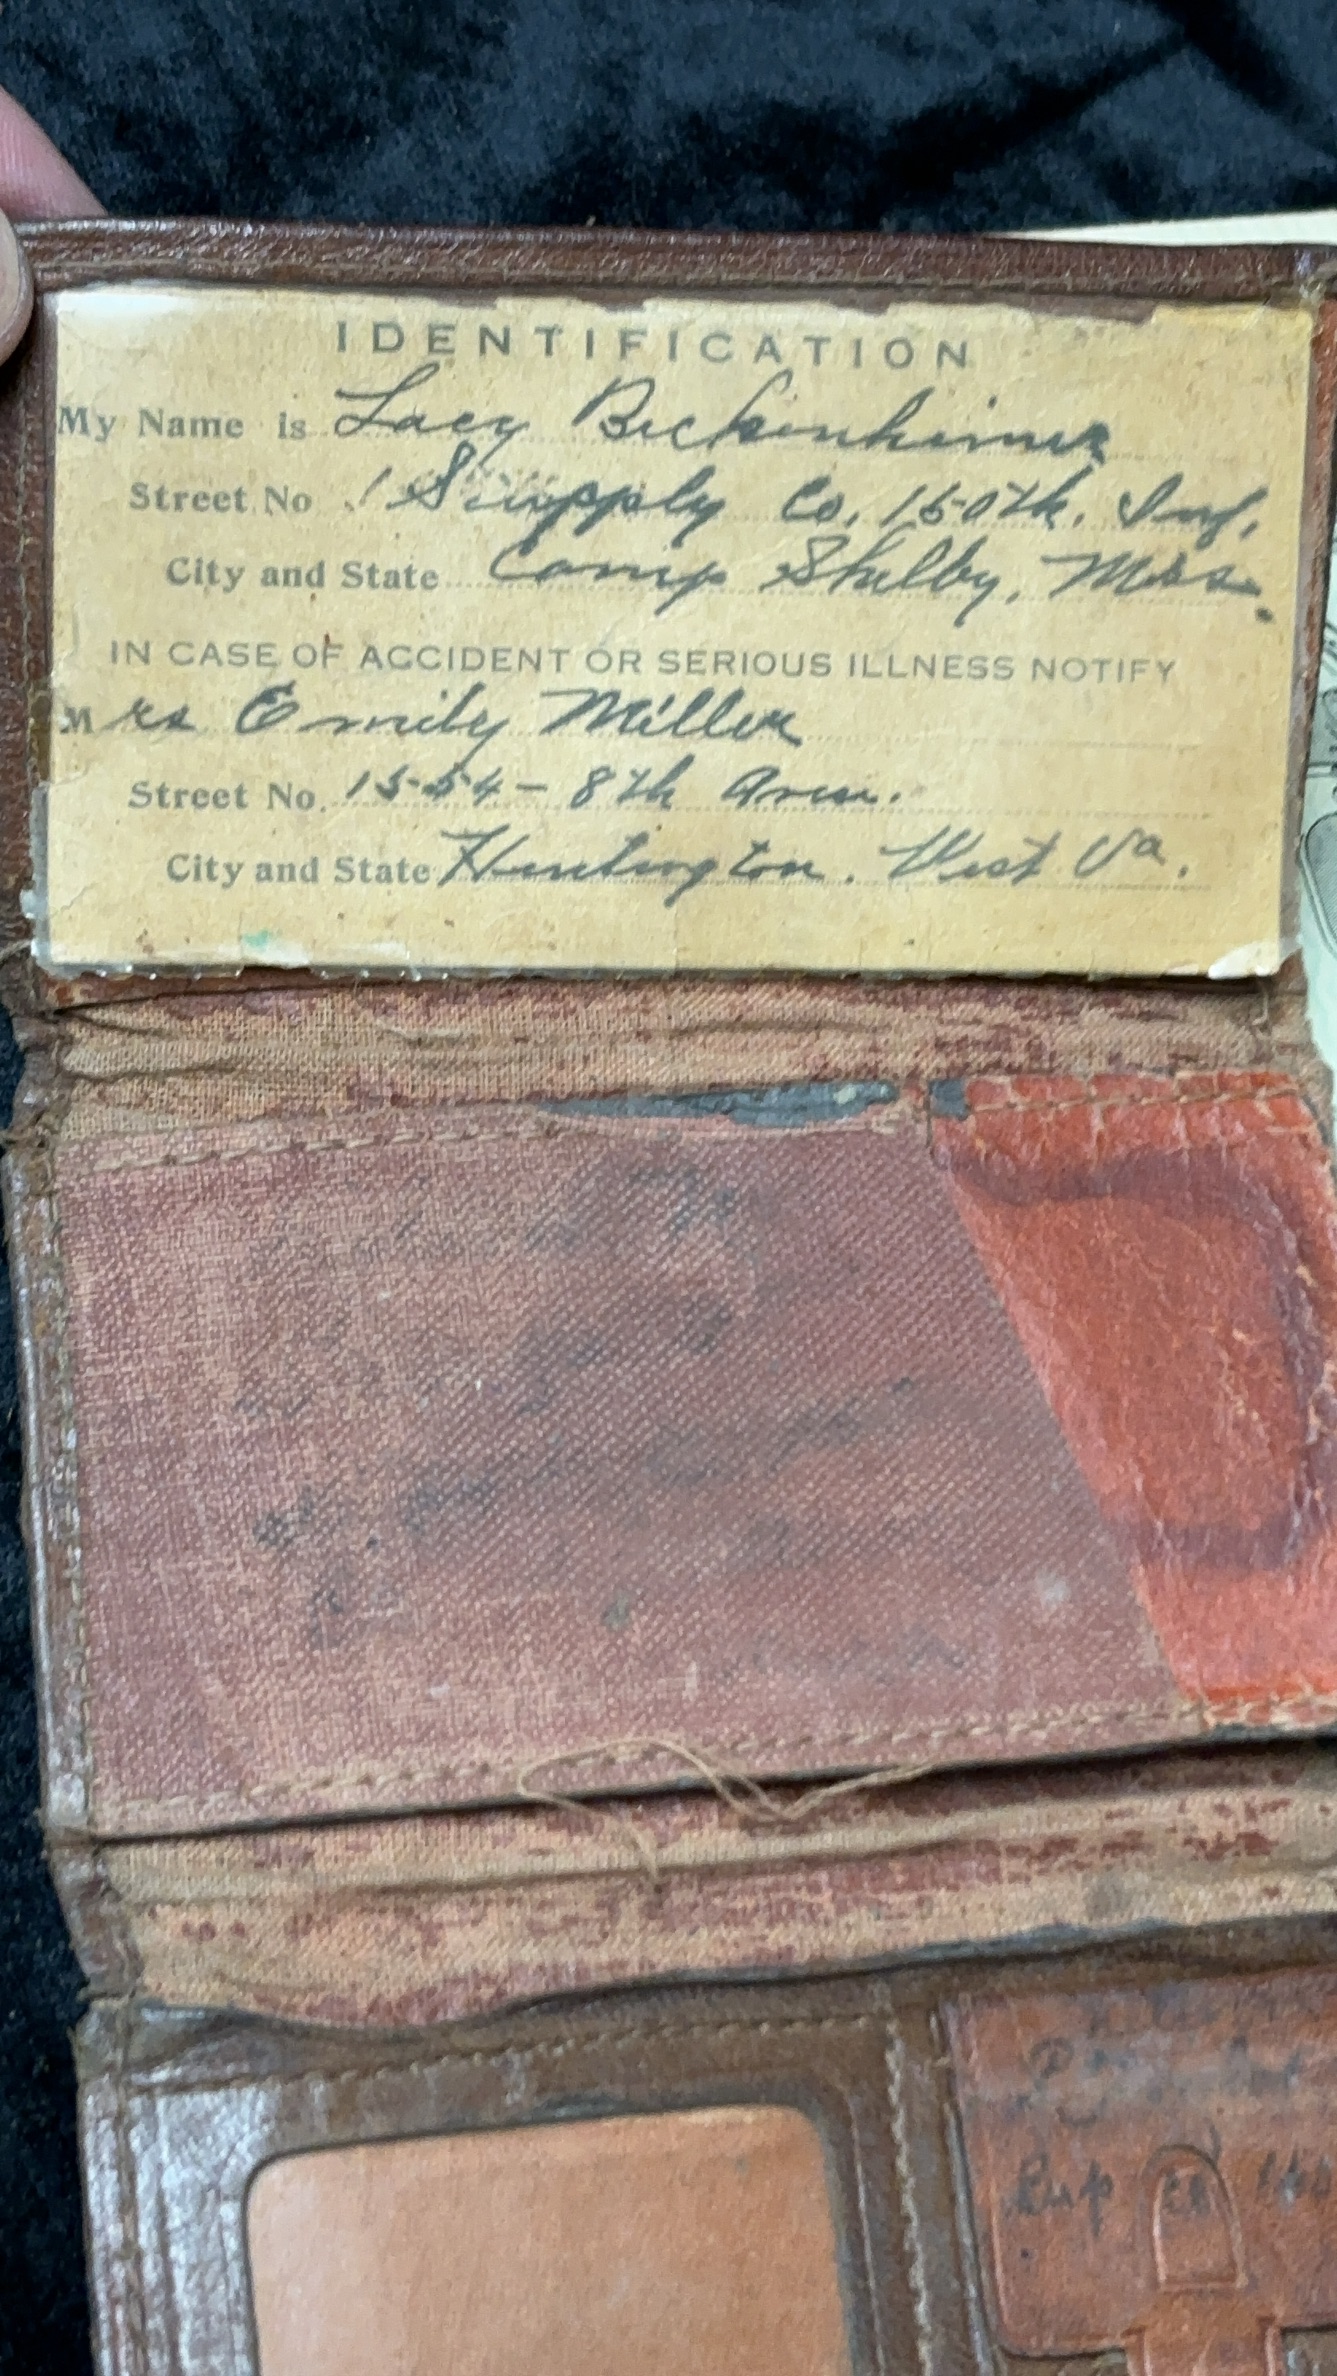 IDENTIFICATION
My Name is Lacy Bickenheimer
Street No. Supply Co, 150th. Inf.
City and State Camp Shelby, Miss.
IN CASE OF ACCIDENT OR SERIOUS ILLNESS NOTIFY
Mrs Emily Miller
Street No. 1554-8th Aven.
City and State Huntington. West Va.